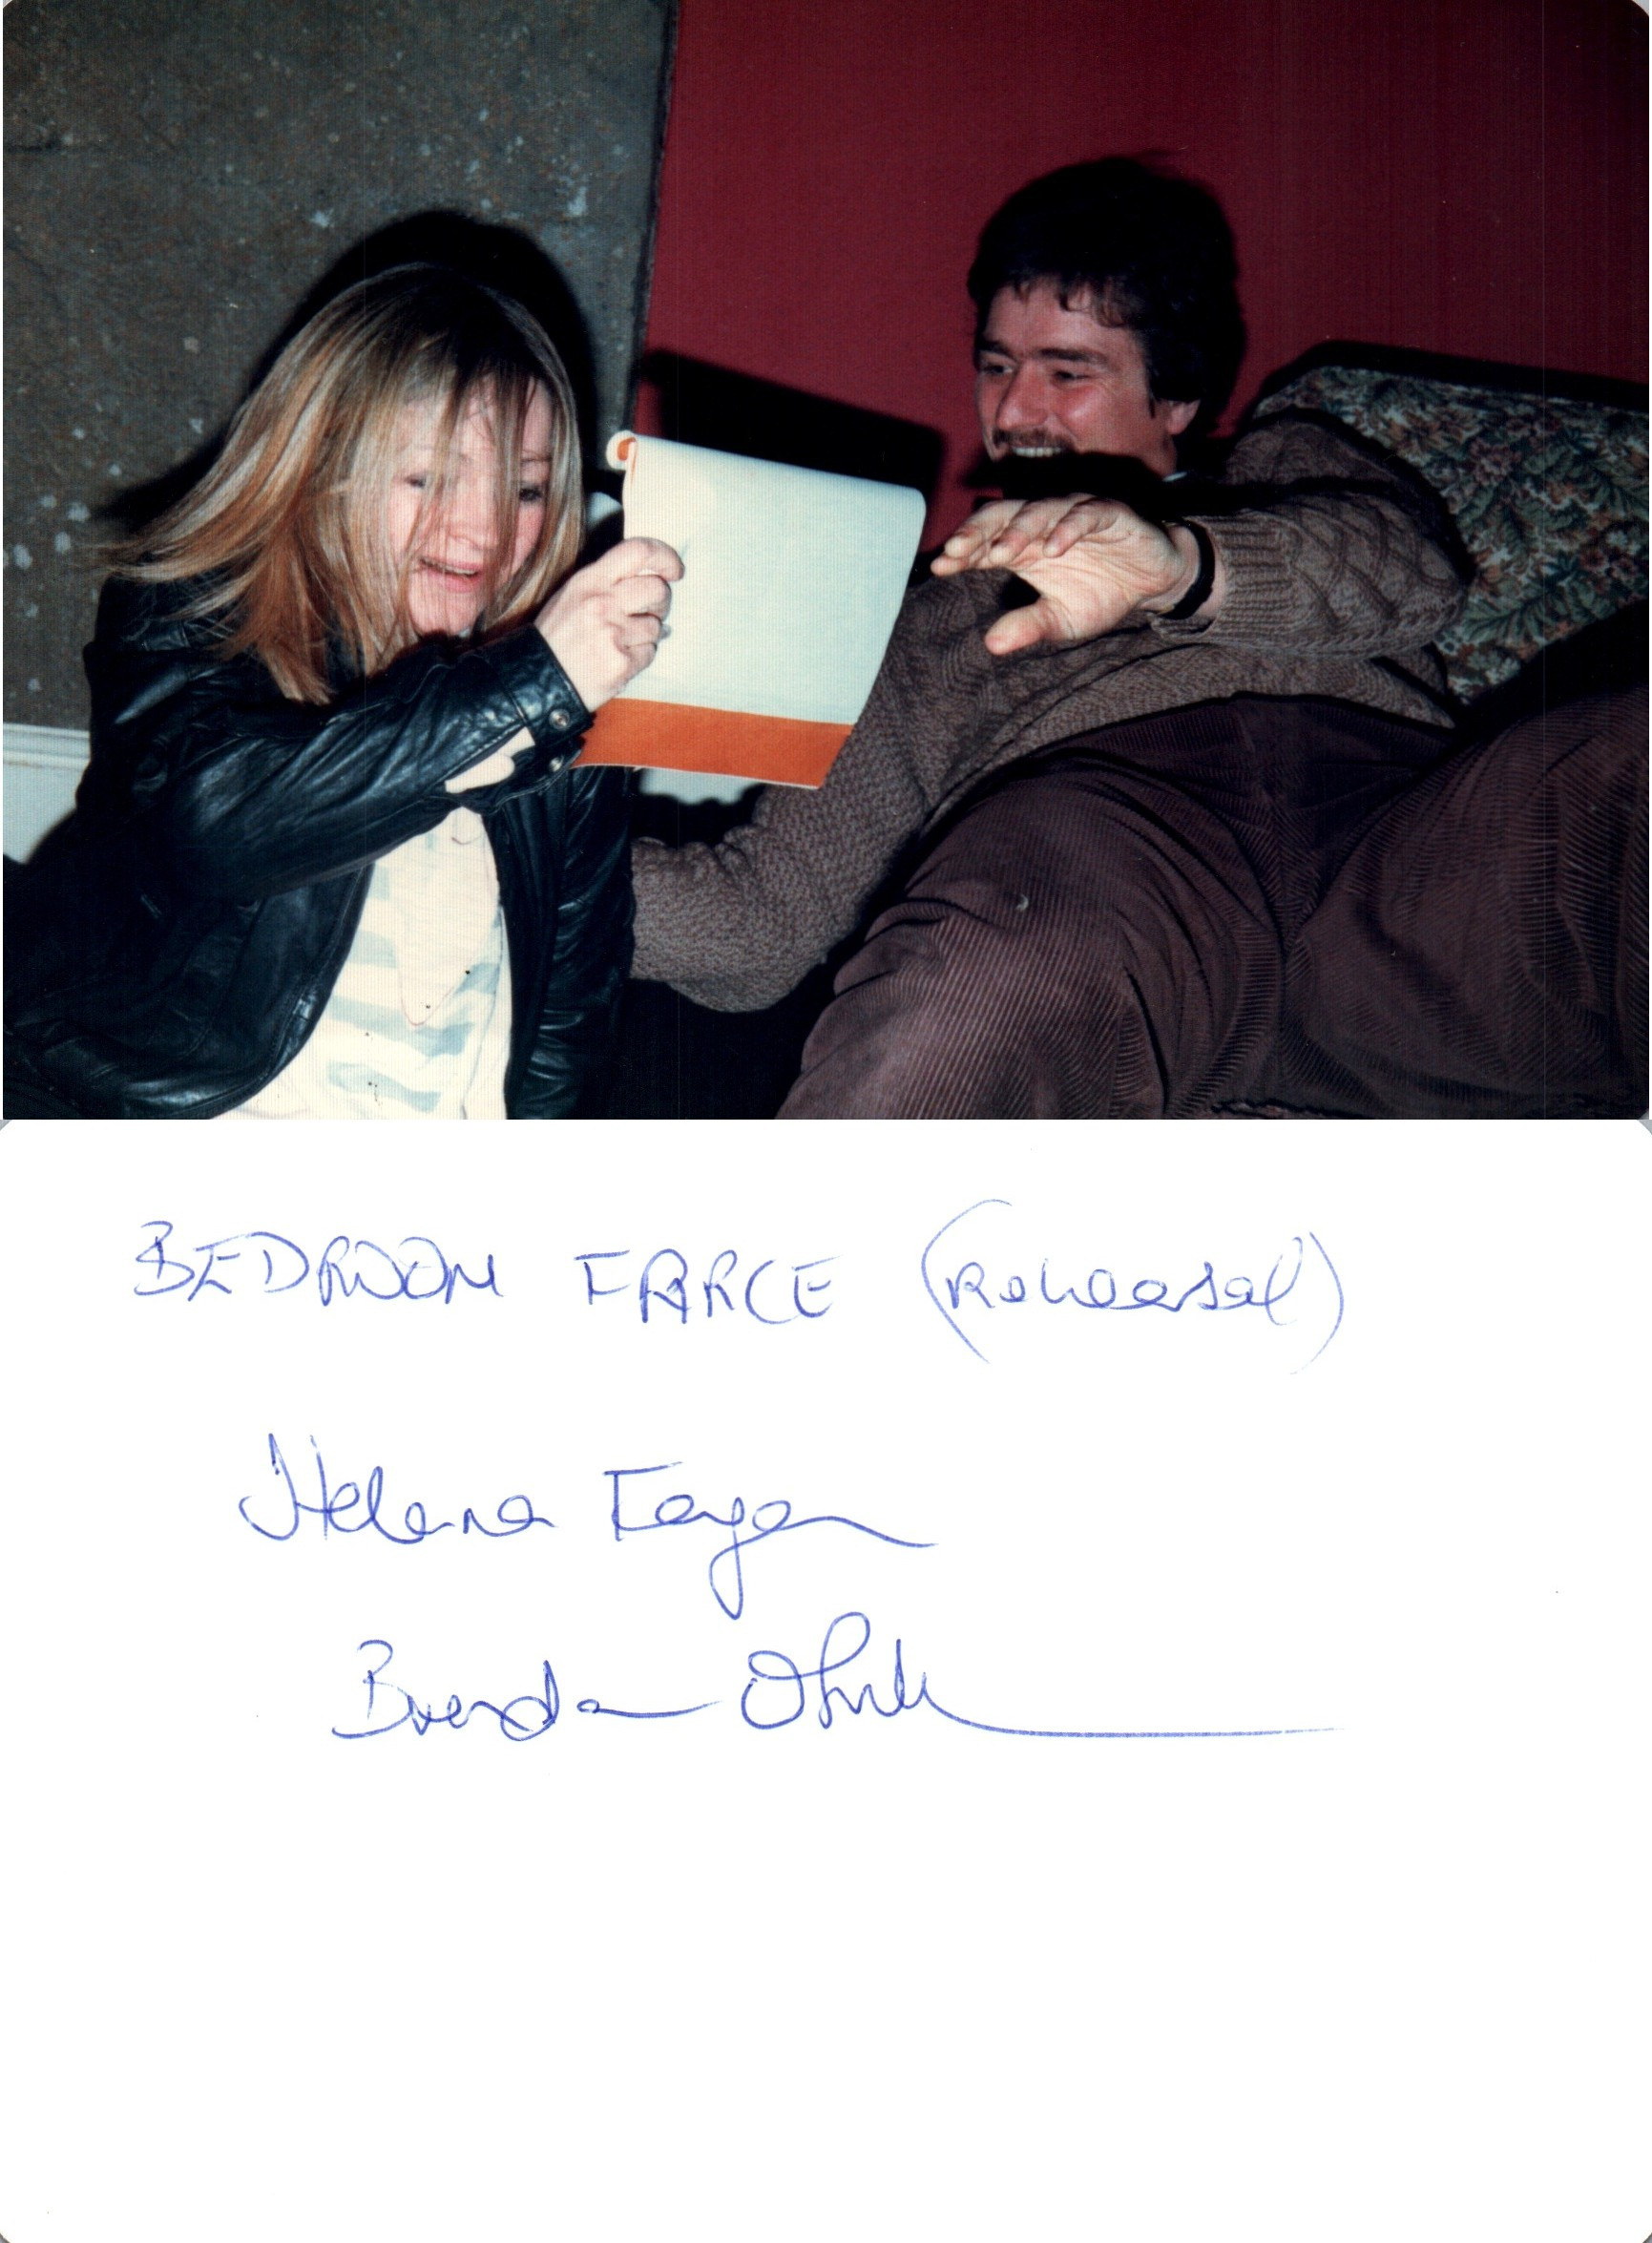 BEDROOM FARCE (Rehearsal)
Helena Fagan
Brendan